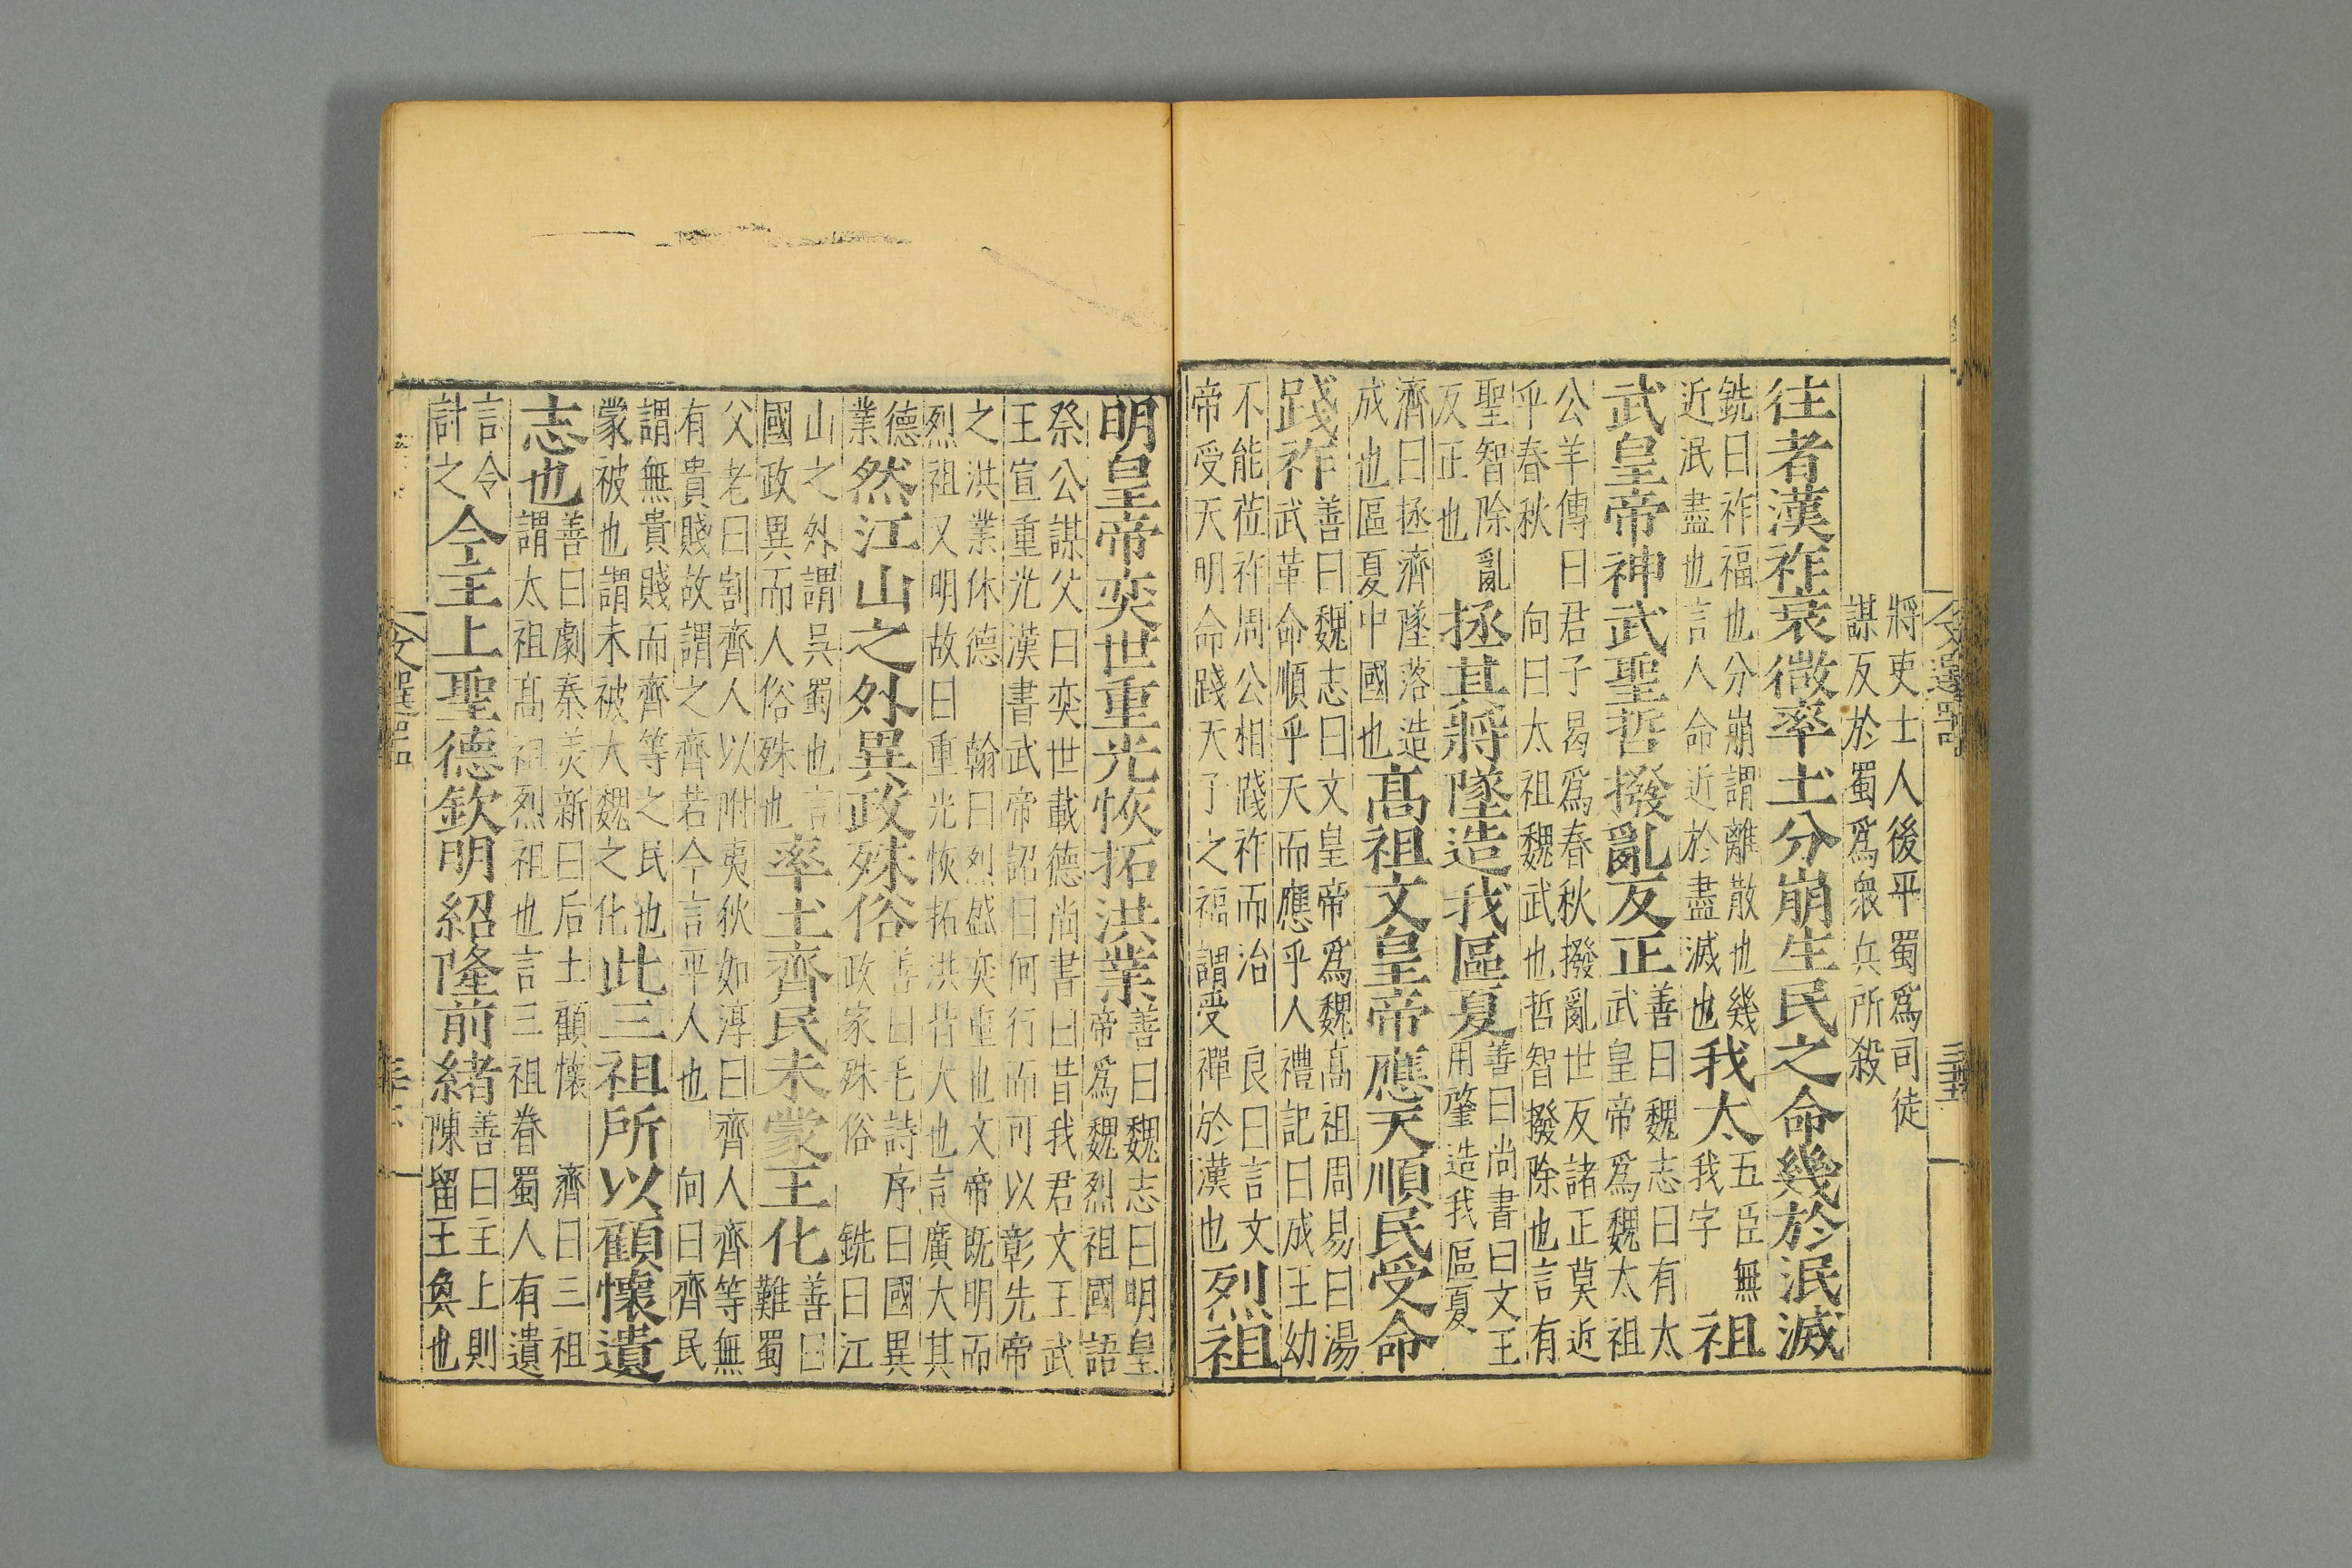 將吏士人後平蜀爲司徒
謀反於蜀爲衆兵所殺
往者漢祚衰微率土分崩生民之命幾於泯滅
銑曰祚福也分崩謂離散也幾
近泯盡也言人命近於盡滅也
我太
五臣無
我字
祖
武皇帝神武聖哲撥亂反正
善曰魏志曰有太
武皇帝爲魏太祖
公羊傳曰君子曷爲春秋撥亂世反諸正莫近
乎春秋 向曰太祖魏武也哲智撥除也言有
聖智除亂
反正也
拯其將墜造我區夏
善曰尚書曰文王
用肇造我區夏
濟曰拯濟墜落造
成也區夏中國也
髙祖文皇帝應天順民受命
踐祚
善曰魏志曰文皇帝爲魏髙祖周易曰湯
武革命順乎天而應乎人禮記曰成王幼
不能莅祚周公相踐祚而治 良曰言文
帝受天明命踐天子之福謂受禪於漢也
烈祖
明皇帝奕世重光恢拓洪業
善曰魏志曰明皇
帝爲魏烈祖國語
祭公謀父曰奕世載德尚書曰昔我君文王武
王宣重光漢書武帝詔曰何行而可以彰先帝
之洪業休德 翰曰烈盛奕重也文帝既明而
烈祖又明故曰重光恢拓洪皆大也言廣大其
德
業
然江山之外異政殊俗
善曰毛詩序曰國異
政家殊俗 銑曰江
山之外謂吳蜀也言
國政異而人俗殊也
率土齊民未蒙王化
善曰
難蜀
父老曰割齊人以附夷狄如淳曰齊人齊等無
有貴賤故謂之齊若今言平人也 向曰齊民
謂無貴賤而齊等之民也
蒙被也謂未被大魏之化
此三祖所以顧懷遺
志也
善曰劇秦美新曰后土顧懷 濟曰三祖
謂太祖髙祖烈祖也言三祖眷蜀人有遺
言令
計之
今主上聖德欽明紹隆前緒
善曰主上則
陳留王奐也